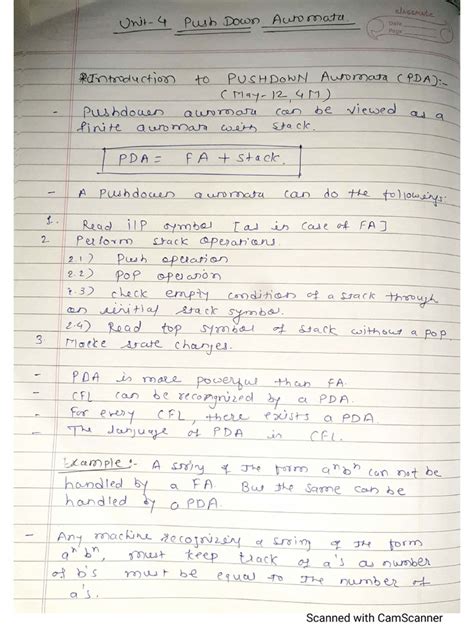 Unit-4 Push Down Automata
classmate
Date
Page
Introduction to PUSHDOWN Automata (PDA):-
(May-12, 4M)
- Pushdown automata can be viewed as a
finite automata with stack.
PDA = FA + Stack.
- A Pushdown automata can do the followings:
1. Read i/P symbol [as in case of FA]
2. Perform stack operations.
2.1) Push operation
2.2) POP operation
2.3) check empty condition of a stack through
an initial stack symbol.
2.4) Read top symbol of stack without a pop.
3 Make state changes.
- PDA is more powerful than FA.
- CFL can be recognized by a PDA.
- For every CFL, there exists a PDA.
- The language of PDA is CFL.
Example:- A string of the form aⁿbⁿ can not be
handled by a FA. But the same can be
handled by a PDA.
- Any machine recognizing a string of the form
aⁿbⁿ, must keep track of a's as number
of b's must be equal to the number of
a's.
Scanned with CamScanner